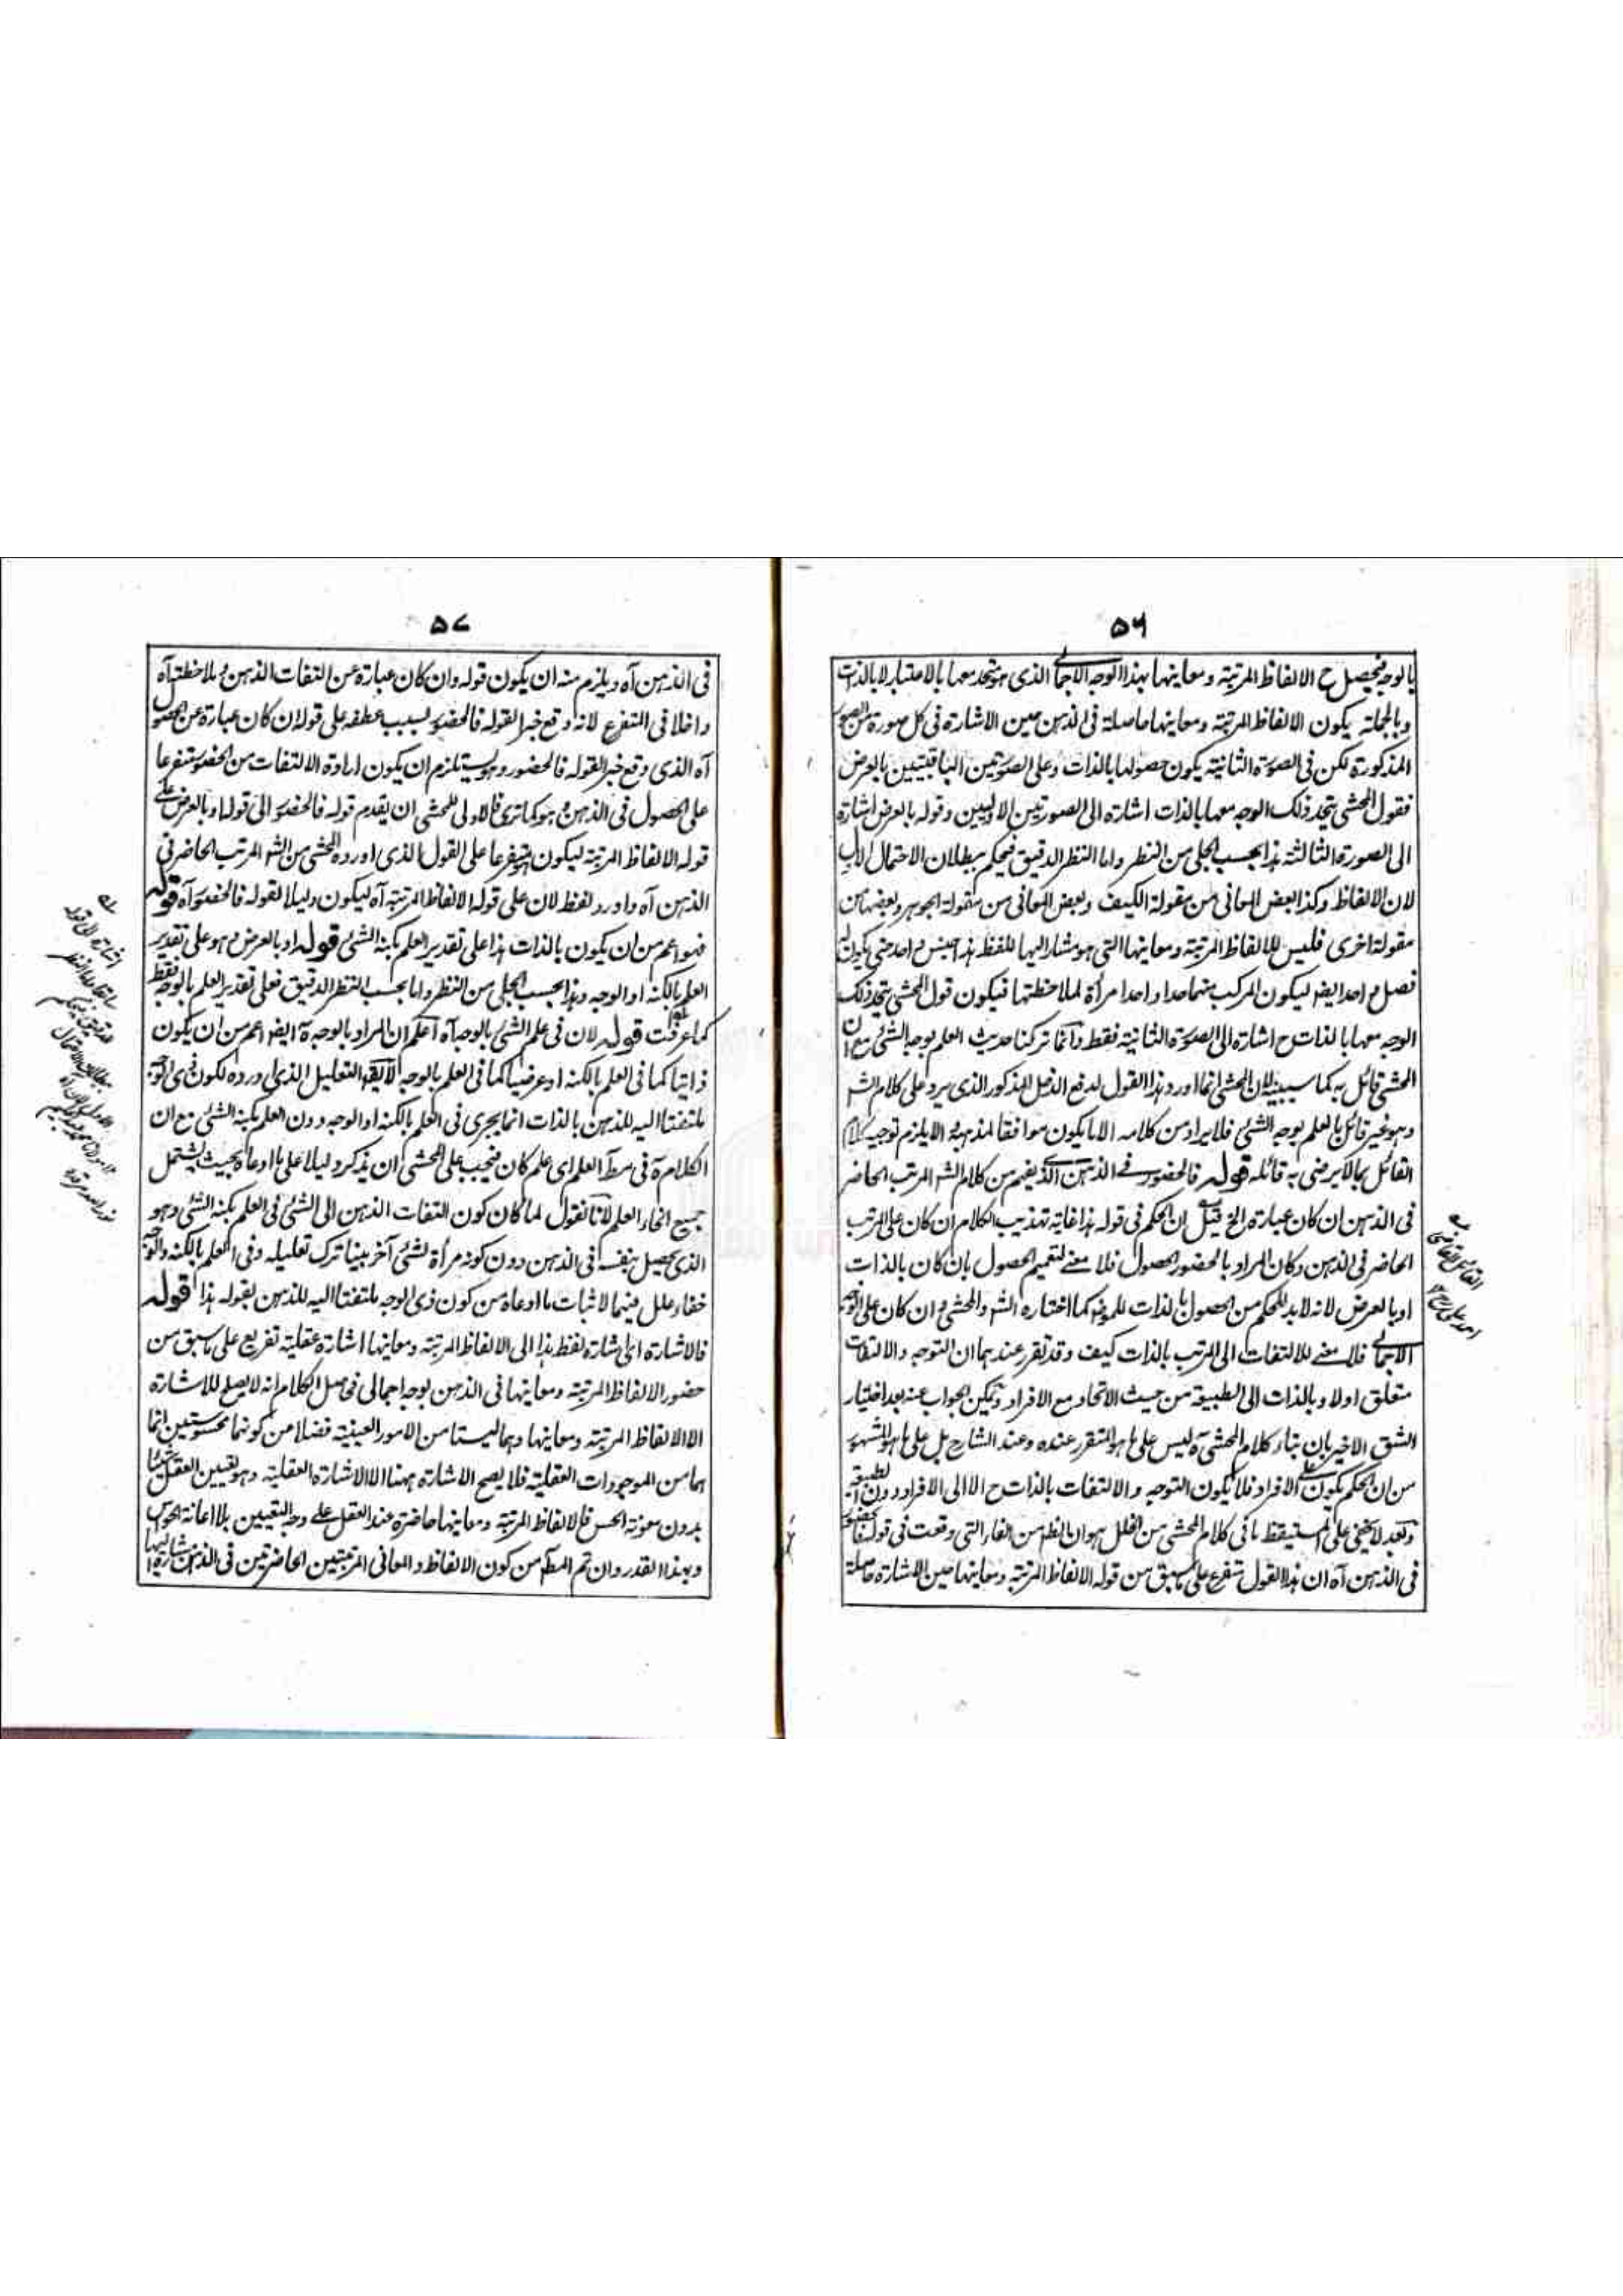 ۵۶
بالوجه فيحصل ح الالفاظ المرتبة ومعاينها بهذا الوجه الاجمالى الذى هو متحد معها بالاعتبار لا بالذات
وبالجملة يكون الالفاظ المرتبة ومعاينها حاصلة فى الذهن حين الاشارة فى كل صورة من الصور
المذكورة لكن فى الصورة الثانية يكون حصولها بالذات وعلى الصورتين الباقيتين بالعرض
فقول المحشى يتحد ذلك الوجه معها بالذات اشارة الى الصورتين الاوليين وقوله بالعرض اشارة
الى الصورة الثالثة هذا بحسب الجلى من النظر واما النظر الدقيق فيحكم ببطلان الاحتمال الاول
لان الالفاظ وكذا بعض المعانى من مقولة الكيف وبعض المعانى من مقولة الجوهر وبعضها من
مقولة اخرى فليس للالفاظ المرتبة ومعاينها التى هو مشار اليها للفظ هذا جنس واحد حتى يكون له
فصل واحد ايضا ليكون المركب منهما حدا واحدا مرأة لملاحظتها فيكون قول المحشى يتحد ذلك
الوجه معها بالذات ح اشارة الى الصورة الثانية فقط وانما تركنا حديث العلم بوجه الشئ مع ان
المحشى قائل به كما سيبينه لان المحشى انما اورد هذا القول لدفع الدخل المذكور الذى يرد على كلام الشہ
وهو غير قائل بالعلم بوجه الشئ فلا يراد من كلامه الا ما يكون موافقا لمذهبه والا يلزم توجيه كلام
القائل بما لا يرضى به قائله قوله فالحضور فى الذهن الذى يفهم من كلام الشہ المرتب الحاضر
فى الذهن ان كان عبارة الخ قيل ان الحكم فى قوله هذا غاية تهذيب الكلام ان كان على المرتب
الحاضر فى الذهن وكان المراد بالحضور الحصول فلا معنى لتعميم الحصول بان كان بالذات
او بالعرض لانه لا بد للحكم من الحصول بالذات للموضوع كما اختاره الشہ والمحشى وان كان على الوجه
الاجمالى فلا معنى للالتفات الى المرتب بالذات كيف وقد تقرر عندهما ان التوجه والالتفات
متعلق اولا وبالذات الى الطبيعة من حيث الاتحاد مع الافراد ويمكن الجواب عنه بعد اختيار
الشق الاخير بان بناء كلام المحشى آه ليس على ما هو المتقرر عنده وعند الشارح بل على ما هو المشهور
من ان الحكم يكون على الافراد فلا يكون التوجه والالتفات بالذات ح الا الى الافراد دون الطبيعة آه
وبعد لا يخفى على المستيقظ ما فى كلام المحشى من الخلل هو ان الظه من الفاء التى وقعت فى قوله فالحضور
فى الذهن آه ان هذا القول متفرع على ما سبق من قوله الالفاظ المرتبة ومعاينها حين الاشارة حاصلة
۵۷
فى الذهن آه ويلزم منه ان يكون قوله وان كان عبارة عن التفات الذهن وملاحظته آه
داخلا فى المتفرع لانه وقع خبر القوله فالحضور بسبب عطفه على قوله ان كان عبارة عن الحصول
آه الذى وقع خبر القوله فالحضور وهو يستلزم ان يكون ارادة الالتفات من الحضور متفرعا
على الحصول فى الذهن وهو كما ترى فالاولى للمحشى ان يقدم قوله فالحضور الى قوله او بالعرض على
قوله الالفاظ المرتبة ليكون متفرعا على القول الذى اورده المحشى من الشہ المرتب الحاضر فى
الذهن آه واورد لفظ لان على قوله الالفاظ المرتبة آه ليكون دليلا لقوله فالحضور آه قوله
فهو اعم من ان يكون بالذات هذا على تقدير العلم بكنه الشئ قوله او بالعرض وهو على تقدير
العلم بالكنه او الوجه وهذا بحسب الجلى من النظر واما بحسب النظر الدقيق فعلى تقدير العلم بالوجه فقط
كما عرفت قوله لان فى علم الشئ بالوجه آه اعلم ان المراد بالوجه آه ايضا اعم من ان يكون
ذاتيا كما فى العلم بالكنه او عرضيا كما فى العلم بالوجه لا يقال التعليل الذى اورده لكون ذى الوجه
ملتفتا اليه للذهن بالذات انما يجرى فى العلم بالكنه او الوجه دون العلم بكنه الشئ مع ان
الكلام آه فى مطلق العلم اى علم كان فيجب على المحشى ان يذكر دليلا على ما ادعاه بحيث يشتمل
جميع انحاء العلم لانا نقول لما كان كون التفات الذهن الى الشئ فى العلم بكنه الشئ وهو
الذى يحصل بنفسه فى الذهن دون كونه مرأة لشئ آخر بينا ترك تعليله وفى العلم بالكنه والوجه
خفاء علل بينهما لاثبات ما ادعاه من كون ذى الوجه ملتفتا اليه للذهن بقوله هذا قوله
فالاشارة اى اشارة لفظ هذا الى الالفاظ المرتبة ومعاينها اشارة عقلية تفريع على ما سبق من
حضور الالفاظ المرتبة ومعاينها فى الذهن بوجه اجمالى فحاصل الكلام انه لا يصلح للاشارة
الا الالفاظ المرتبة ومعاينها وهما ليستا من الامور العينية فضلا من كونهما محسوستين انما
هما من الموجودات العقلية فلا يصح الاشارة ههنا الا الاشارة العقلية وهو تعيين العقل شيئا
بدون معونة الحس فالالفاظ المرتبة ومعاينها حاضرة عند العقل على وجه التعيين بلا اعانة الحواس
وبهذا القدر وان تم المطلب من كون الالفاظ والمعانى المرتبتين الحاضرتين فى الذهن مشارا اليها